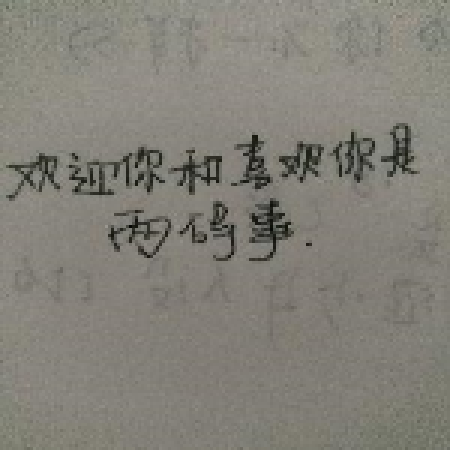 欢迎你和喜欢你是
两码事.